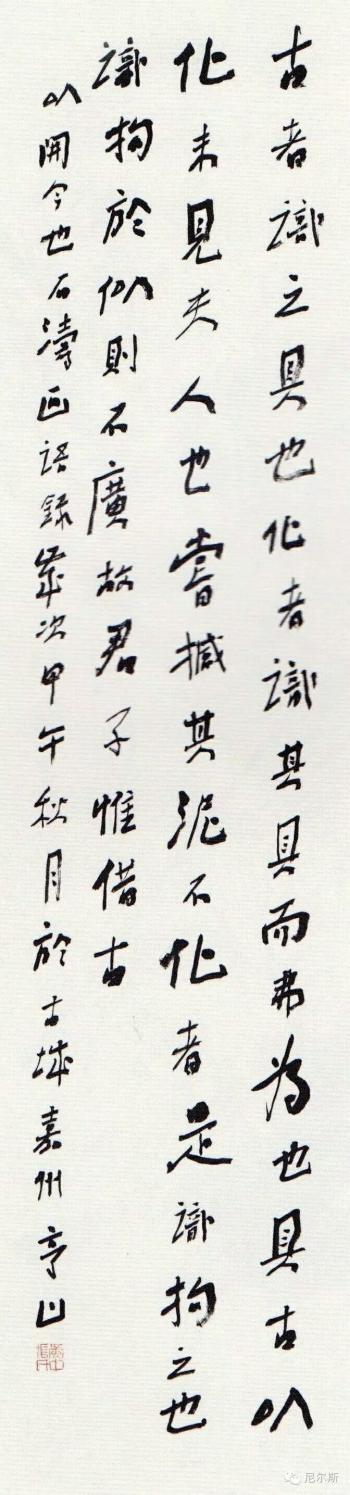 古者識之具也化者識其具而弗為也具古以
化未見夫人也嘗撼其泥不化者是識拘之也
識拘於似則不廣故君子惟借古
以開今也石濤画語錄歲次甲午秋月於古城嘉州亭山
尼尔斯